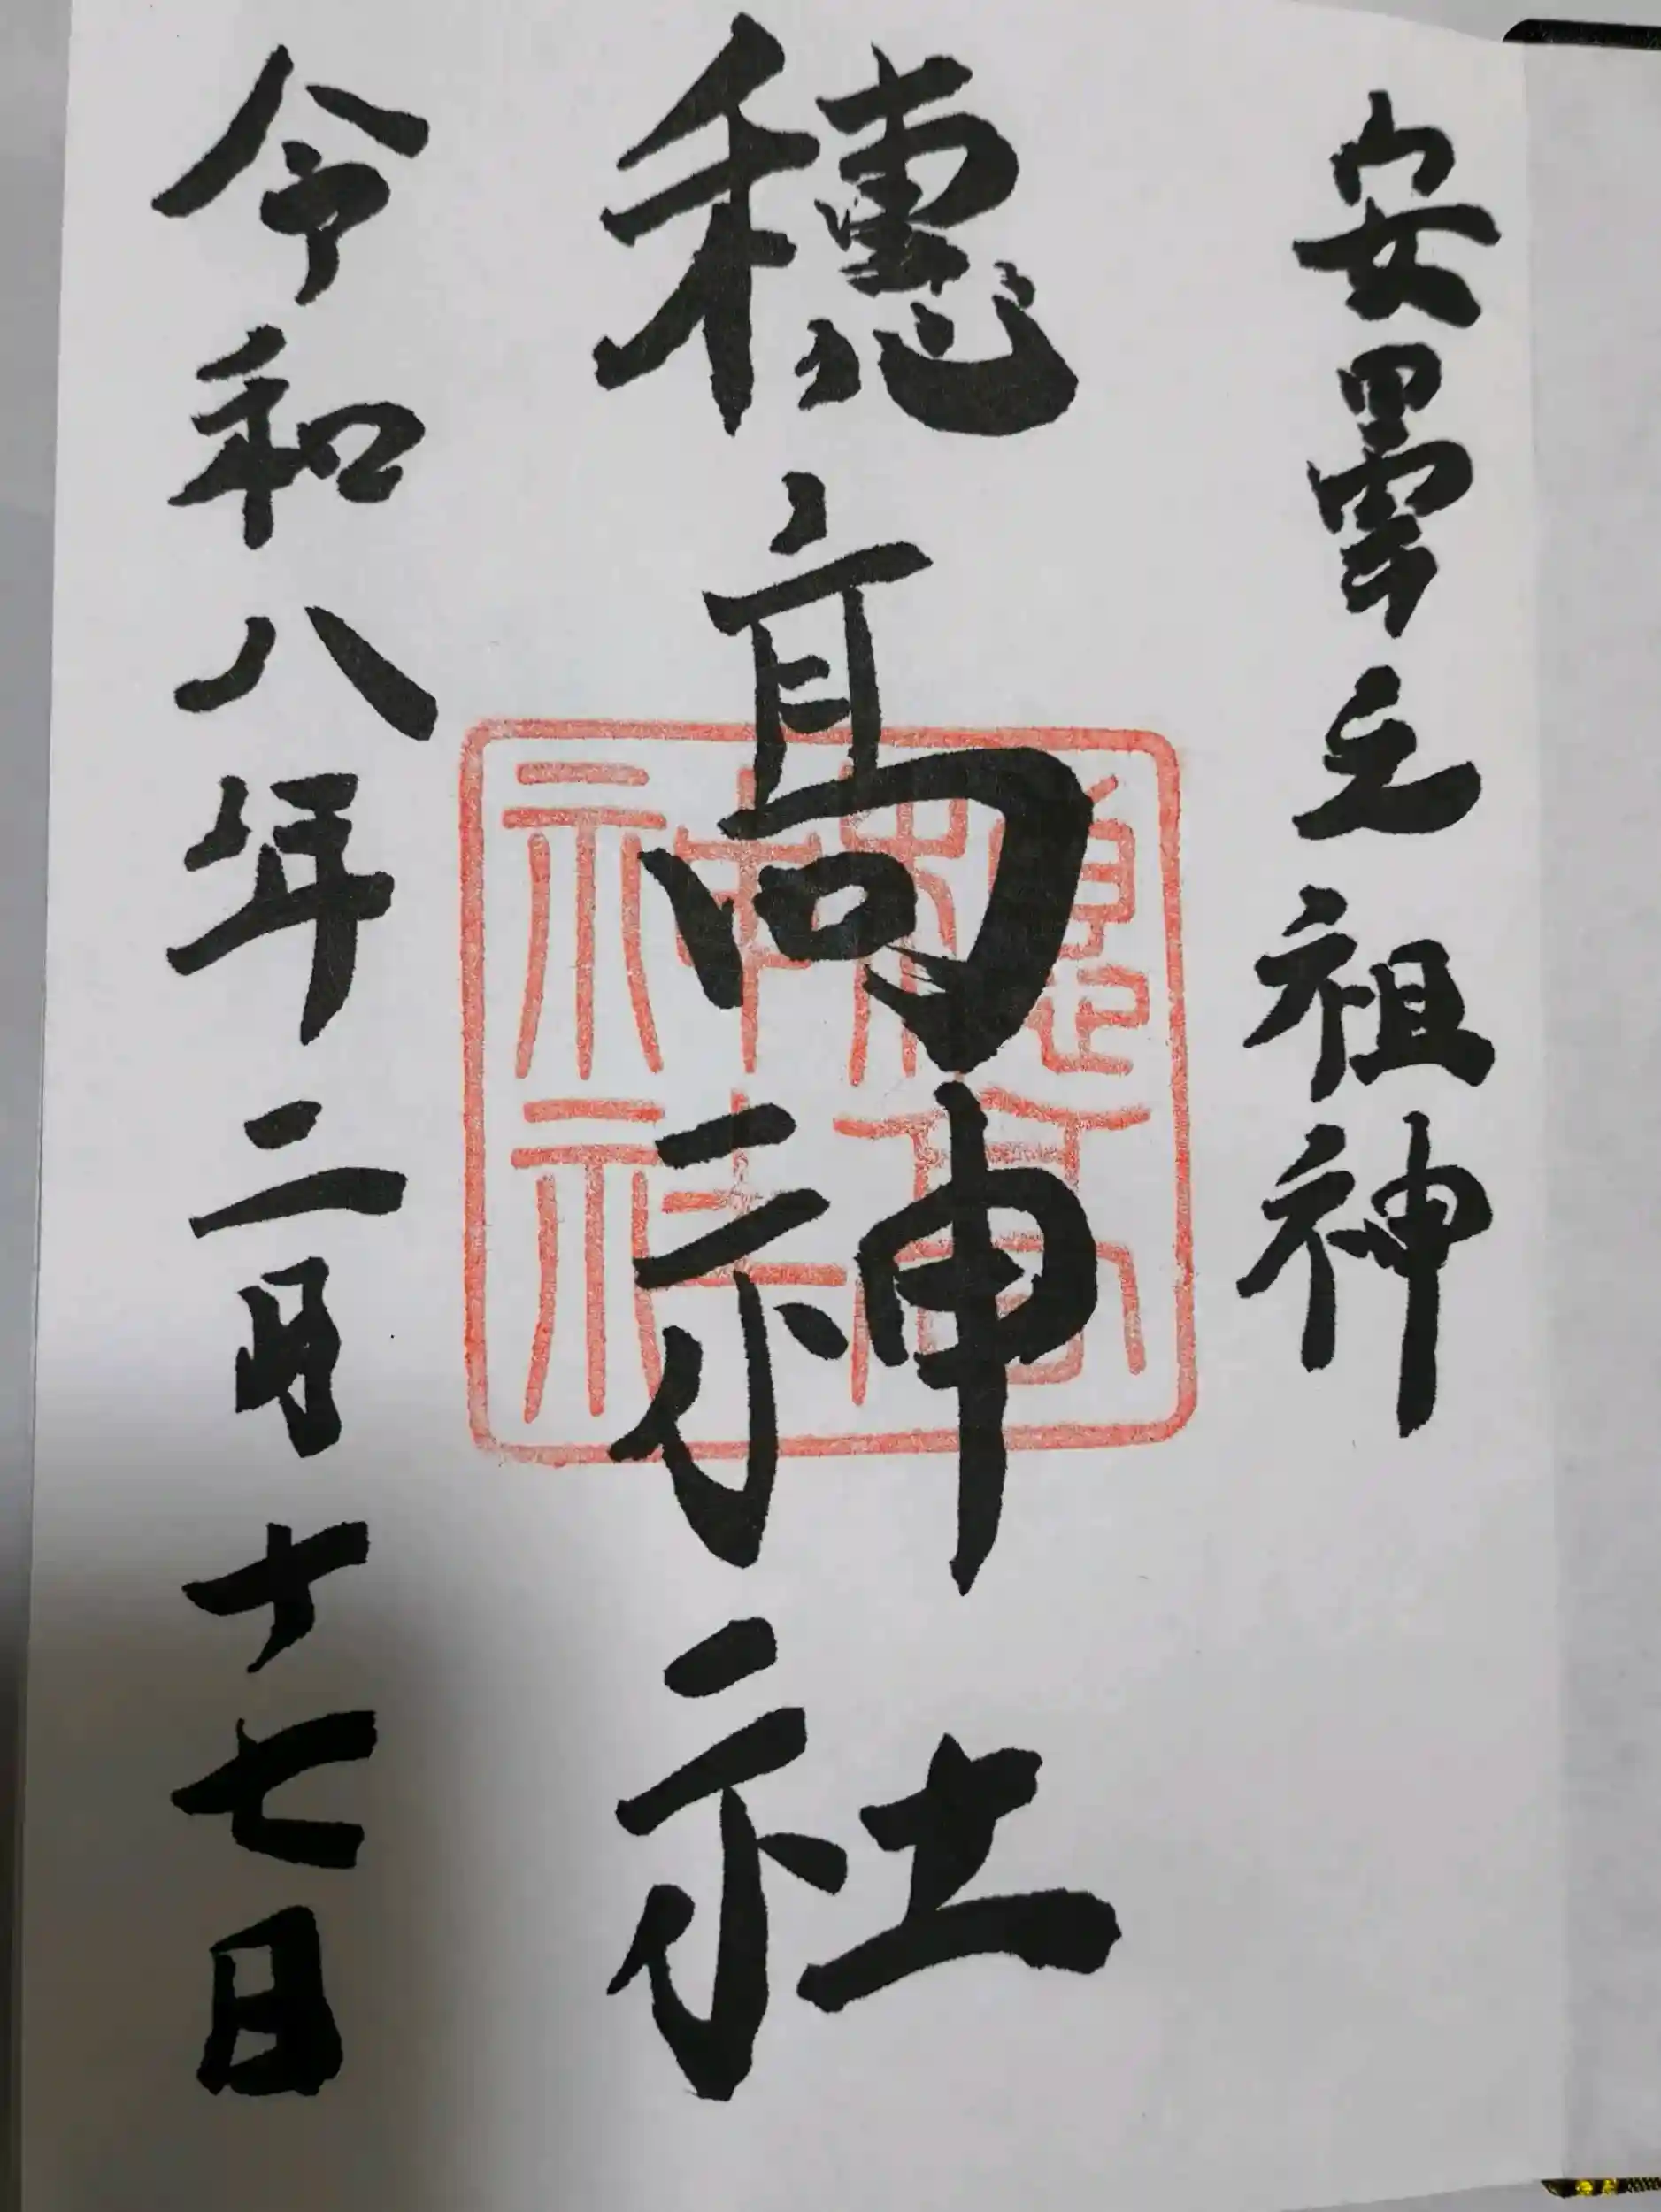 安曇之祖神
穗髙神社
穗髙神社
令和八年二月十七日